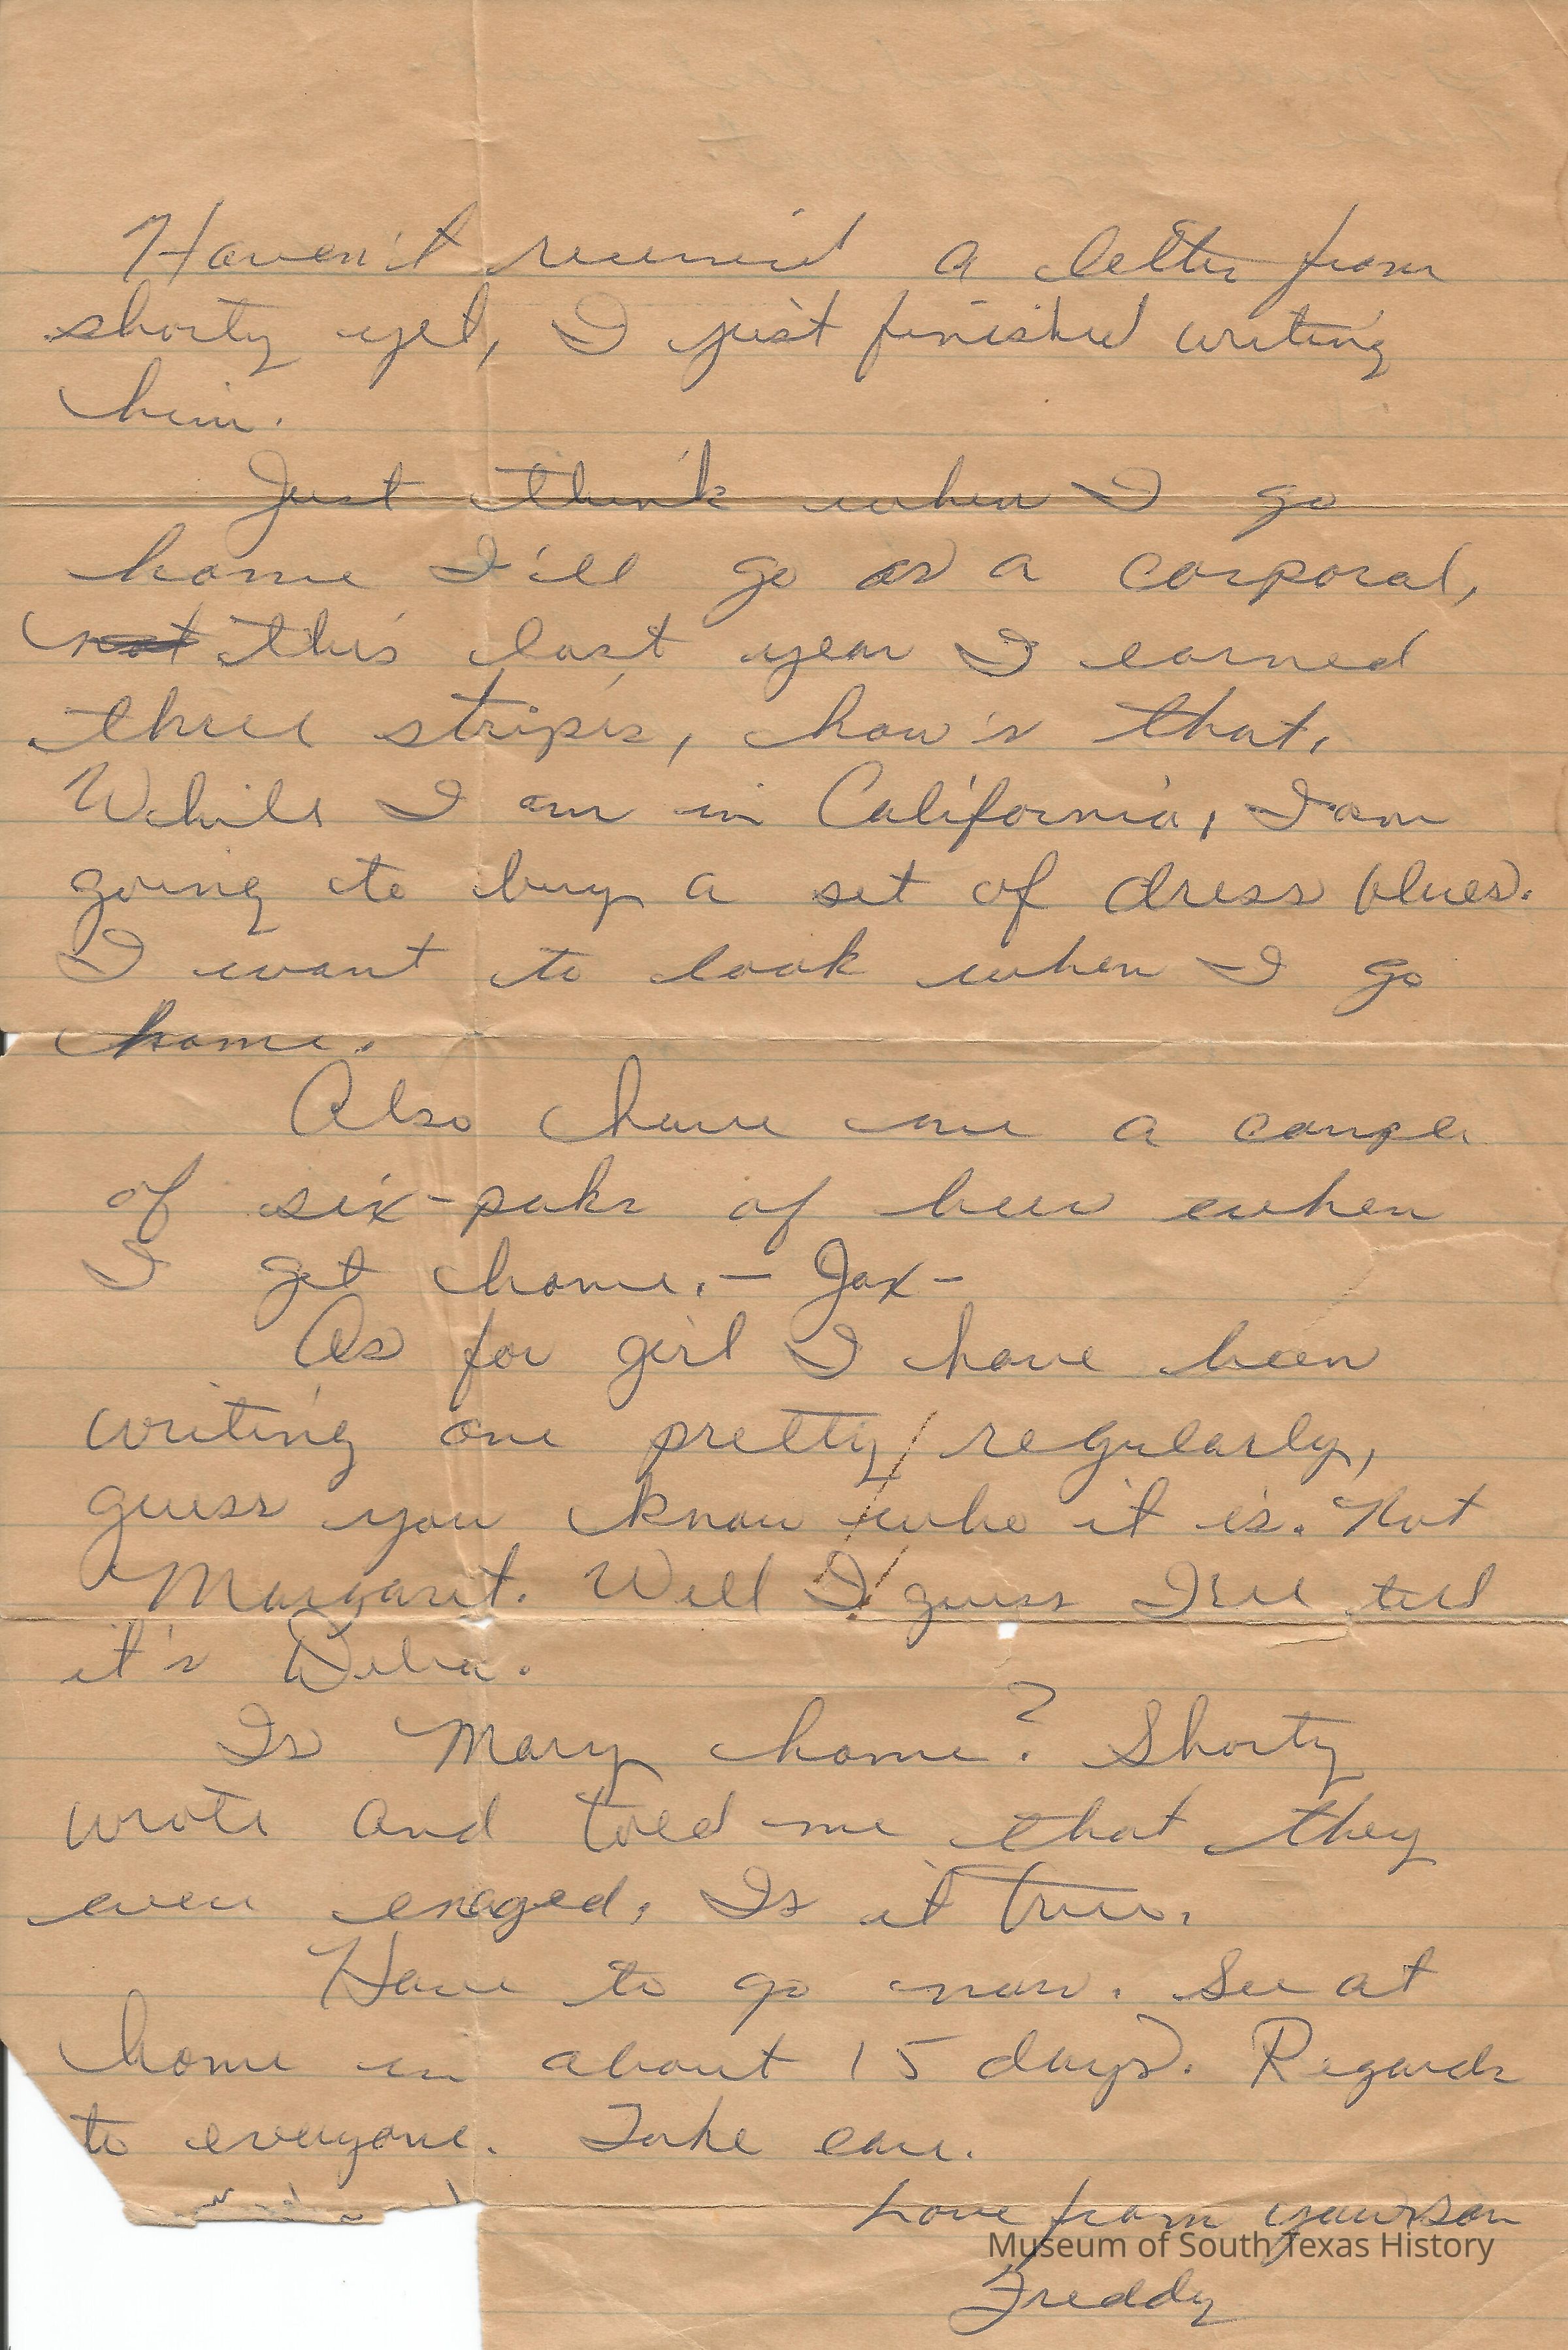 Haven't received a letter from
shorty yet, I just finished writing
him.
Just think when I go
home I'ill go as a corporal,
not this last year I earned
three stripes, how's that.
While I am in California, I am
going to buy a set of dress blues.
I want to look when I go
home.
Also have me a couple
of six-paks of beer when
I get home. - Jax -
As for girl I have been
writing one pretty regularly,
guess you know who it is. Not
Margaret. Well I guess I'll tell
it's
Is Mary home? Shorty
wrote and told me that they
even enaged. Is it true.
Have to go now. See at
home in about 15 days. Regards
to everyone. Take care.
Love from your son
Freddy
Museum of South Texas History